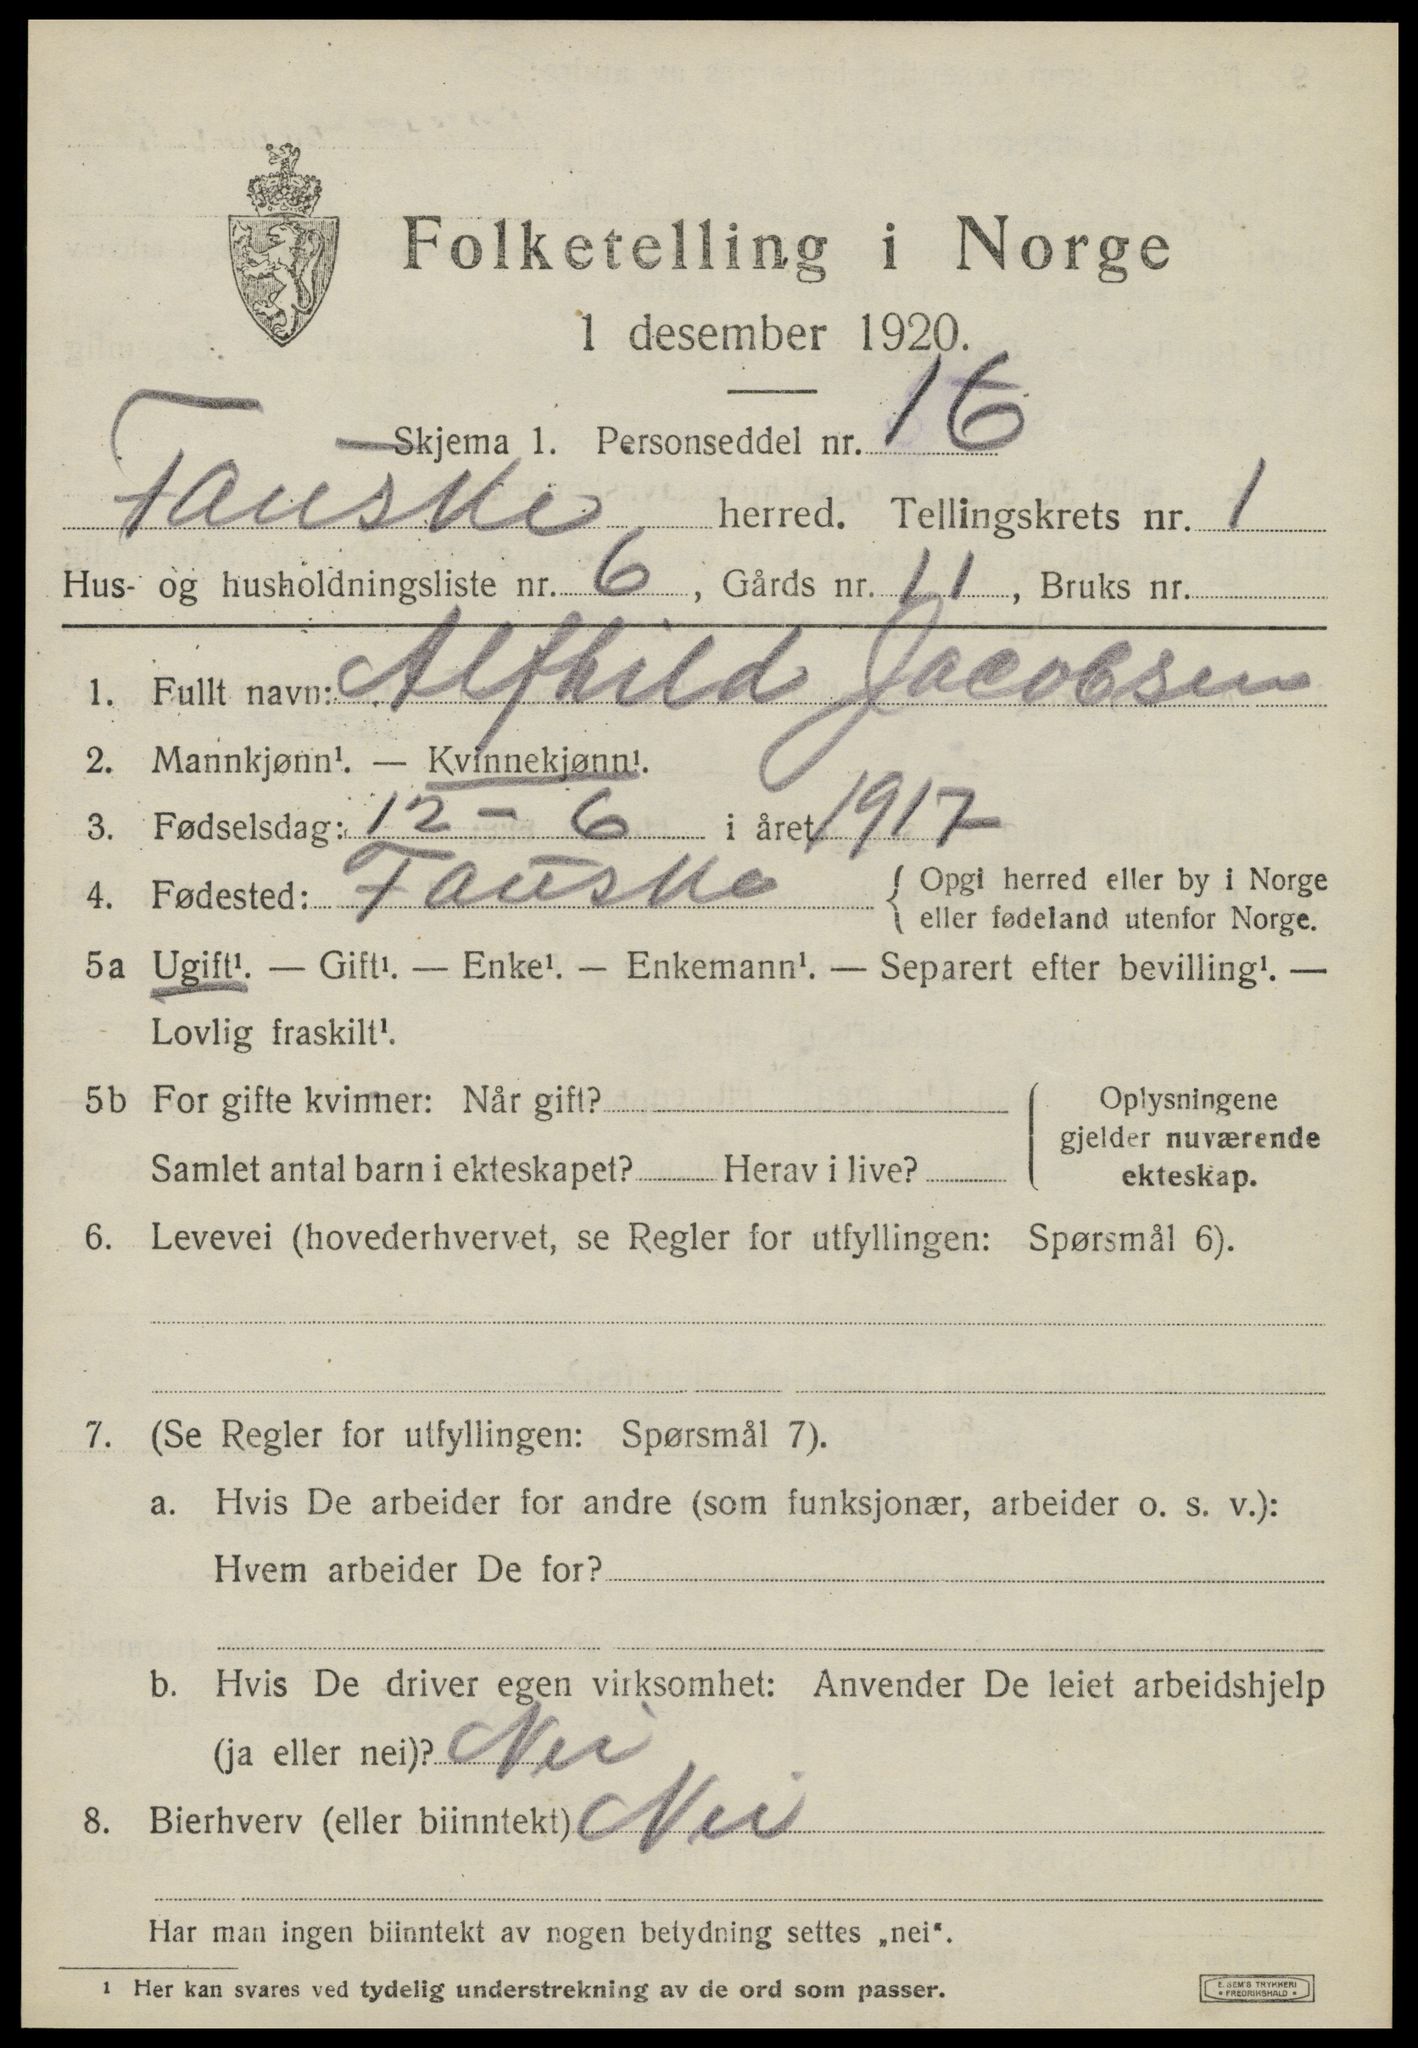 Folketelling i Norge
1 desember 1920.
Skjema 1. Personseddel nr. 16
Fauske herred. Tellingskrets nr. 1
Hus- og husholdningsliste nr. 6, Gårds nr. 11, Bruks nr.
1. Fullt navn: Alfhild Jacobsen
2. Mannkjønn¹. — Kvinnekjønn¹.
3. Fødselsdag: 12 - 6 i året 1917
4. Fødested: Fauske { Opgi herred eller by i Norge
eller fødeland utenfor Norge.
5a Ugift¹. — Gift¹. — Enke¹. — Enkemann¹. — Separert efter bevilling¹. —
Lovlig fraskilt¹.
5b For gifte kvinner: Når gift?
Samlet antal barn i ekteskapet? Herav i live?
Oplysningene
gjelder nuværende
ekteskap.
6. Levevei (hovederhvervet, se Regler for utfyllingen: Spørsmål 6).
7. (Se Regler for utfyllingen: Spørsmål 7).
a. Hvis De arbeider for andre (som funksjonær, arbeider o. s. v.):
Hvem arbeider De for?
b. Hvis De driver egen virksomhet: Anvender De leiet arbeidshjelp
(ja eller nei)? Nei
8. Bierhverv (eller biinntekt) Nei
Har man ingen biinntekt av nogen betydning settes „nei“.
¹ Her kan svares ved tydelig understrekning av de ord som passer.
E. SEM'S TRYKKERI
• FREDRIKSHALD •